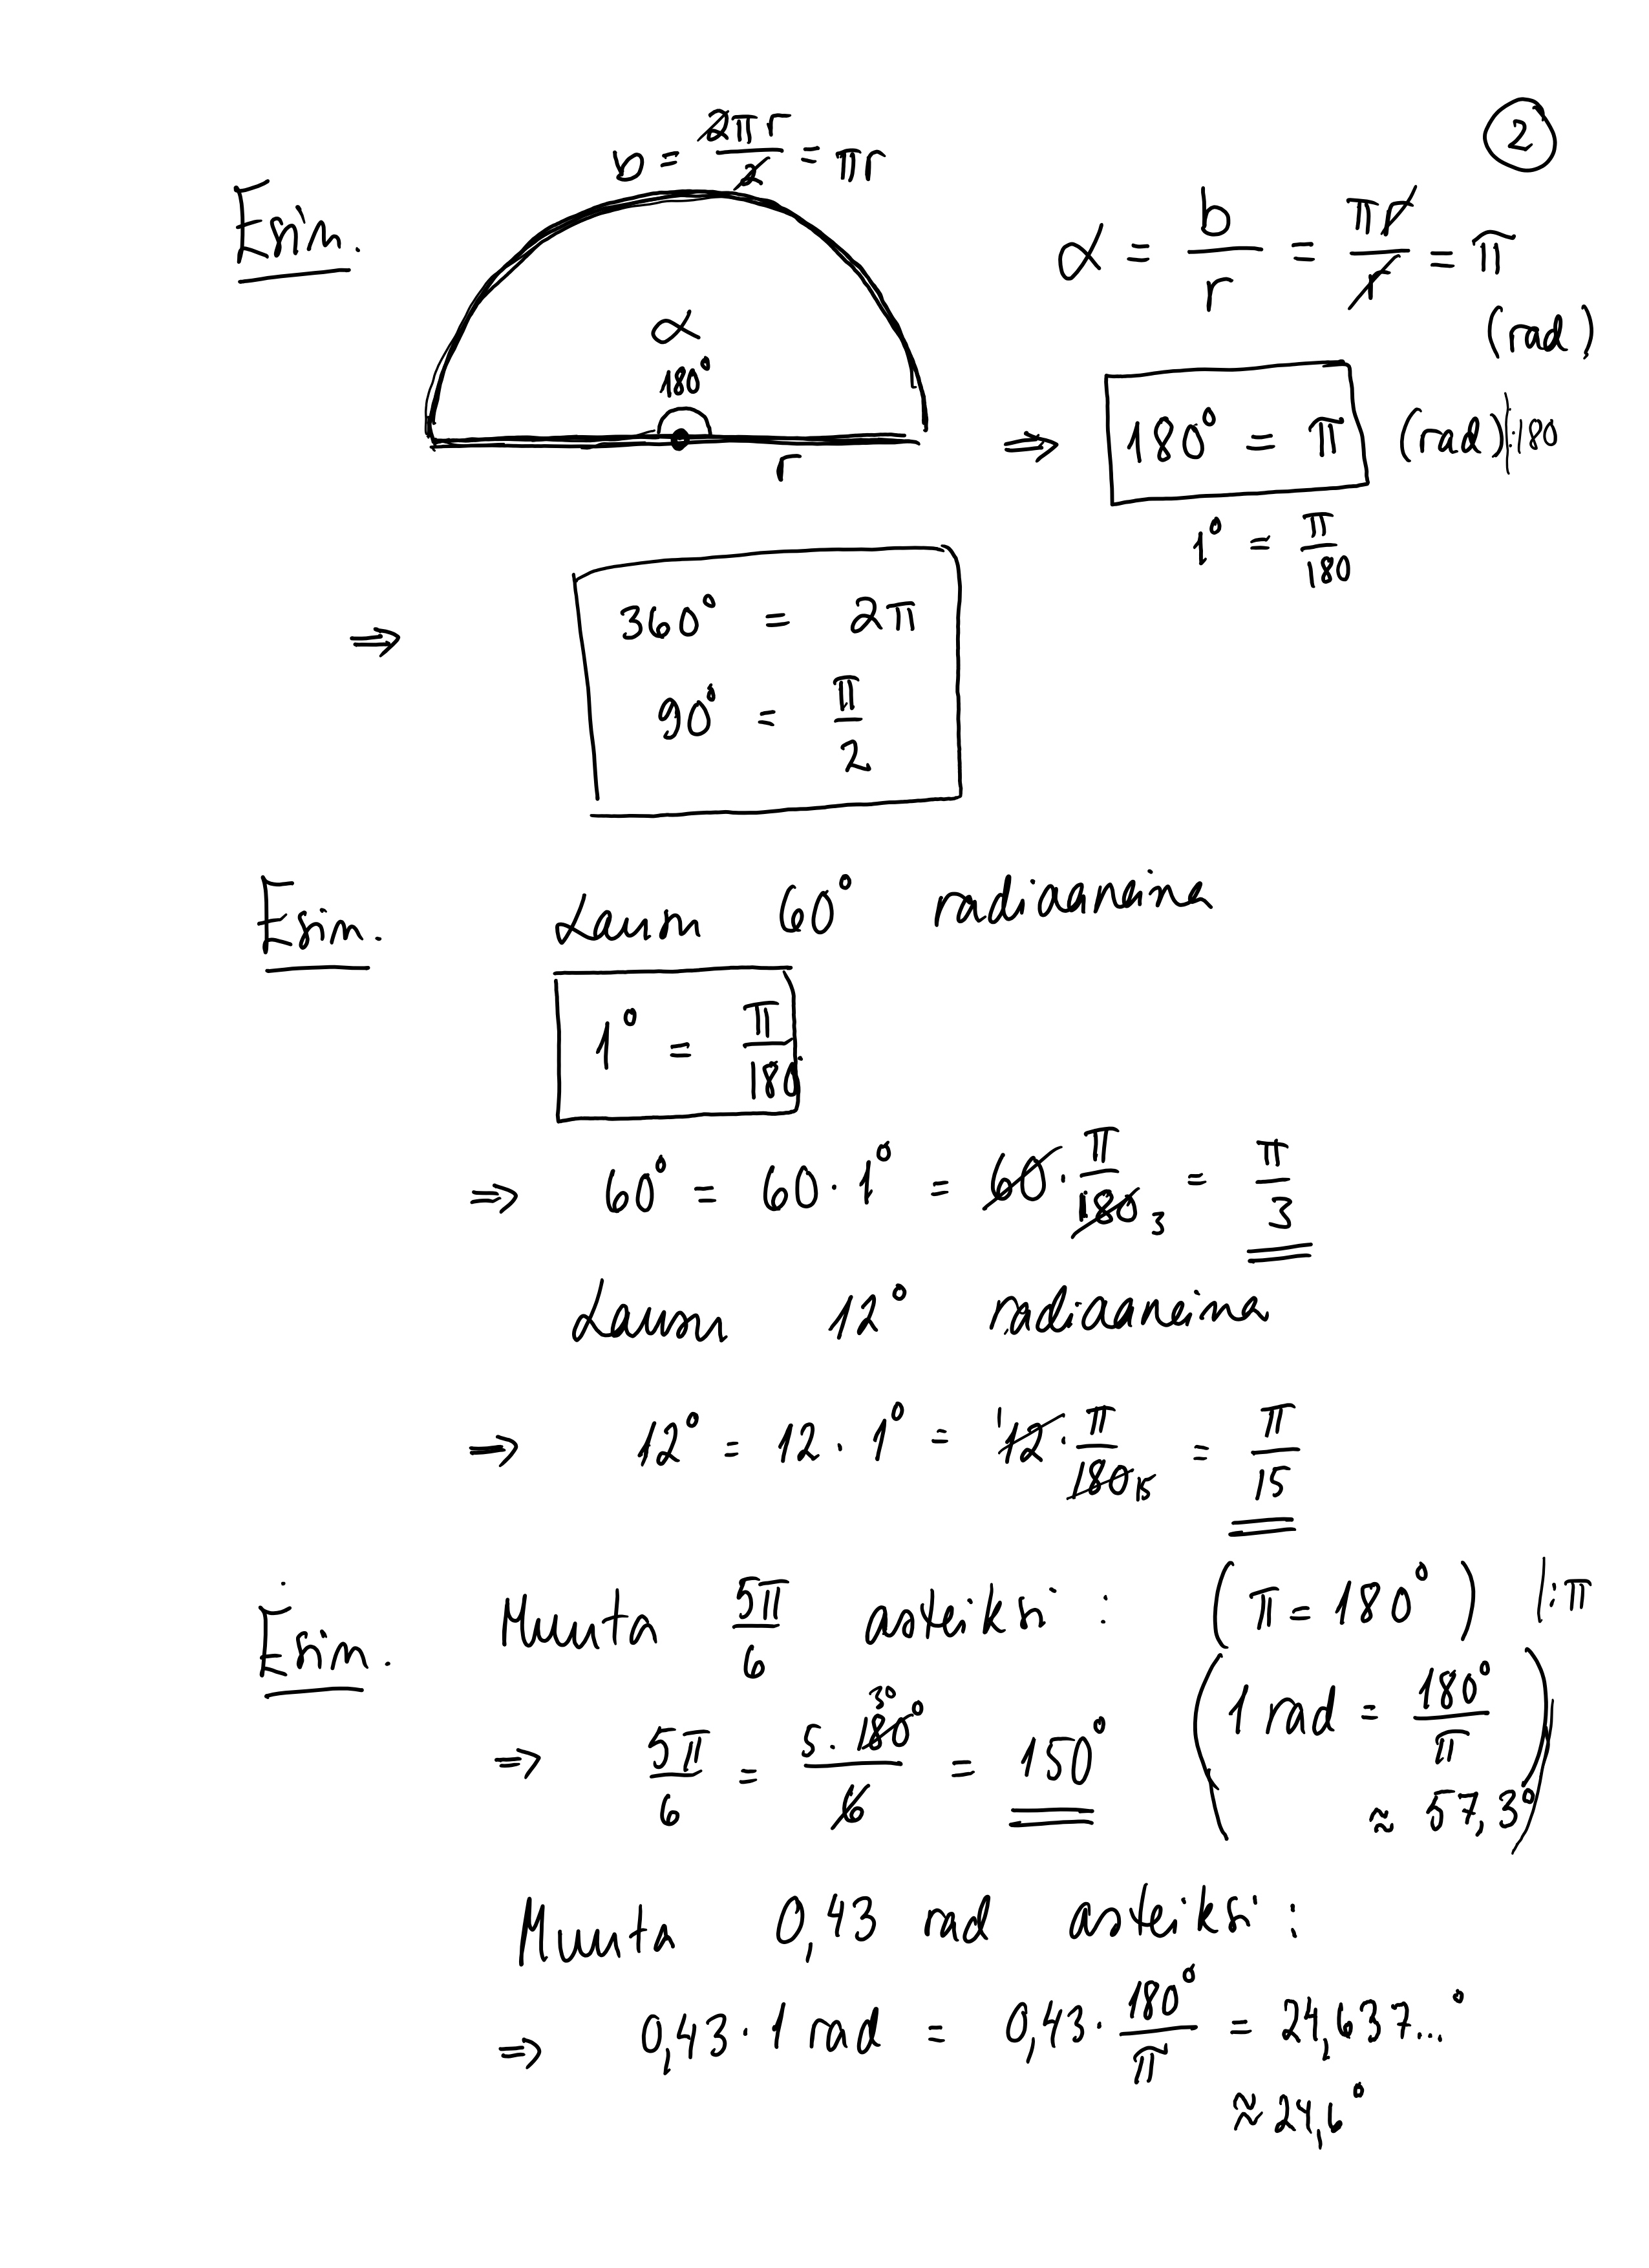 2
b = 2πr/2 = πr
Esim.
α = b/r = πr/r = π
(rad)
α
180°
r
⇒ 180° = π (rad) |:180
1° = π/180
⇒ 360° = 2π
90° = π/2
Esim. Lausu 60° radiaaneina
1° = π/180
⇒ 60° = 60·1° = 60·π/180 3 = π/3
Lausu 12° radiaaneina
⇒ 12° = 12·1° = 1 12·π/180 15 = π/15
Esim. Muuta 5π/6 asteiksi: (π = 180°) |:π
(1 rad = 180°/π
≈ 57,3°)
⇒ 5π/6 = 5·180° 30/6 = 150°
Muuta 0,43 rad asteiksi:
⇒ 0,43·1 rad = 0,43·180°/π = 24,637...°
≈ 24,6°